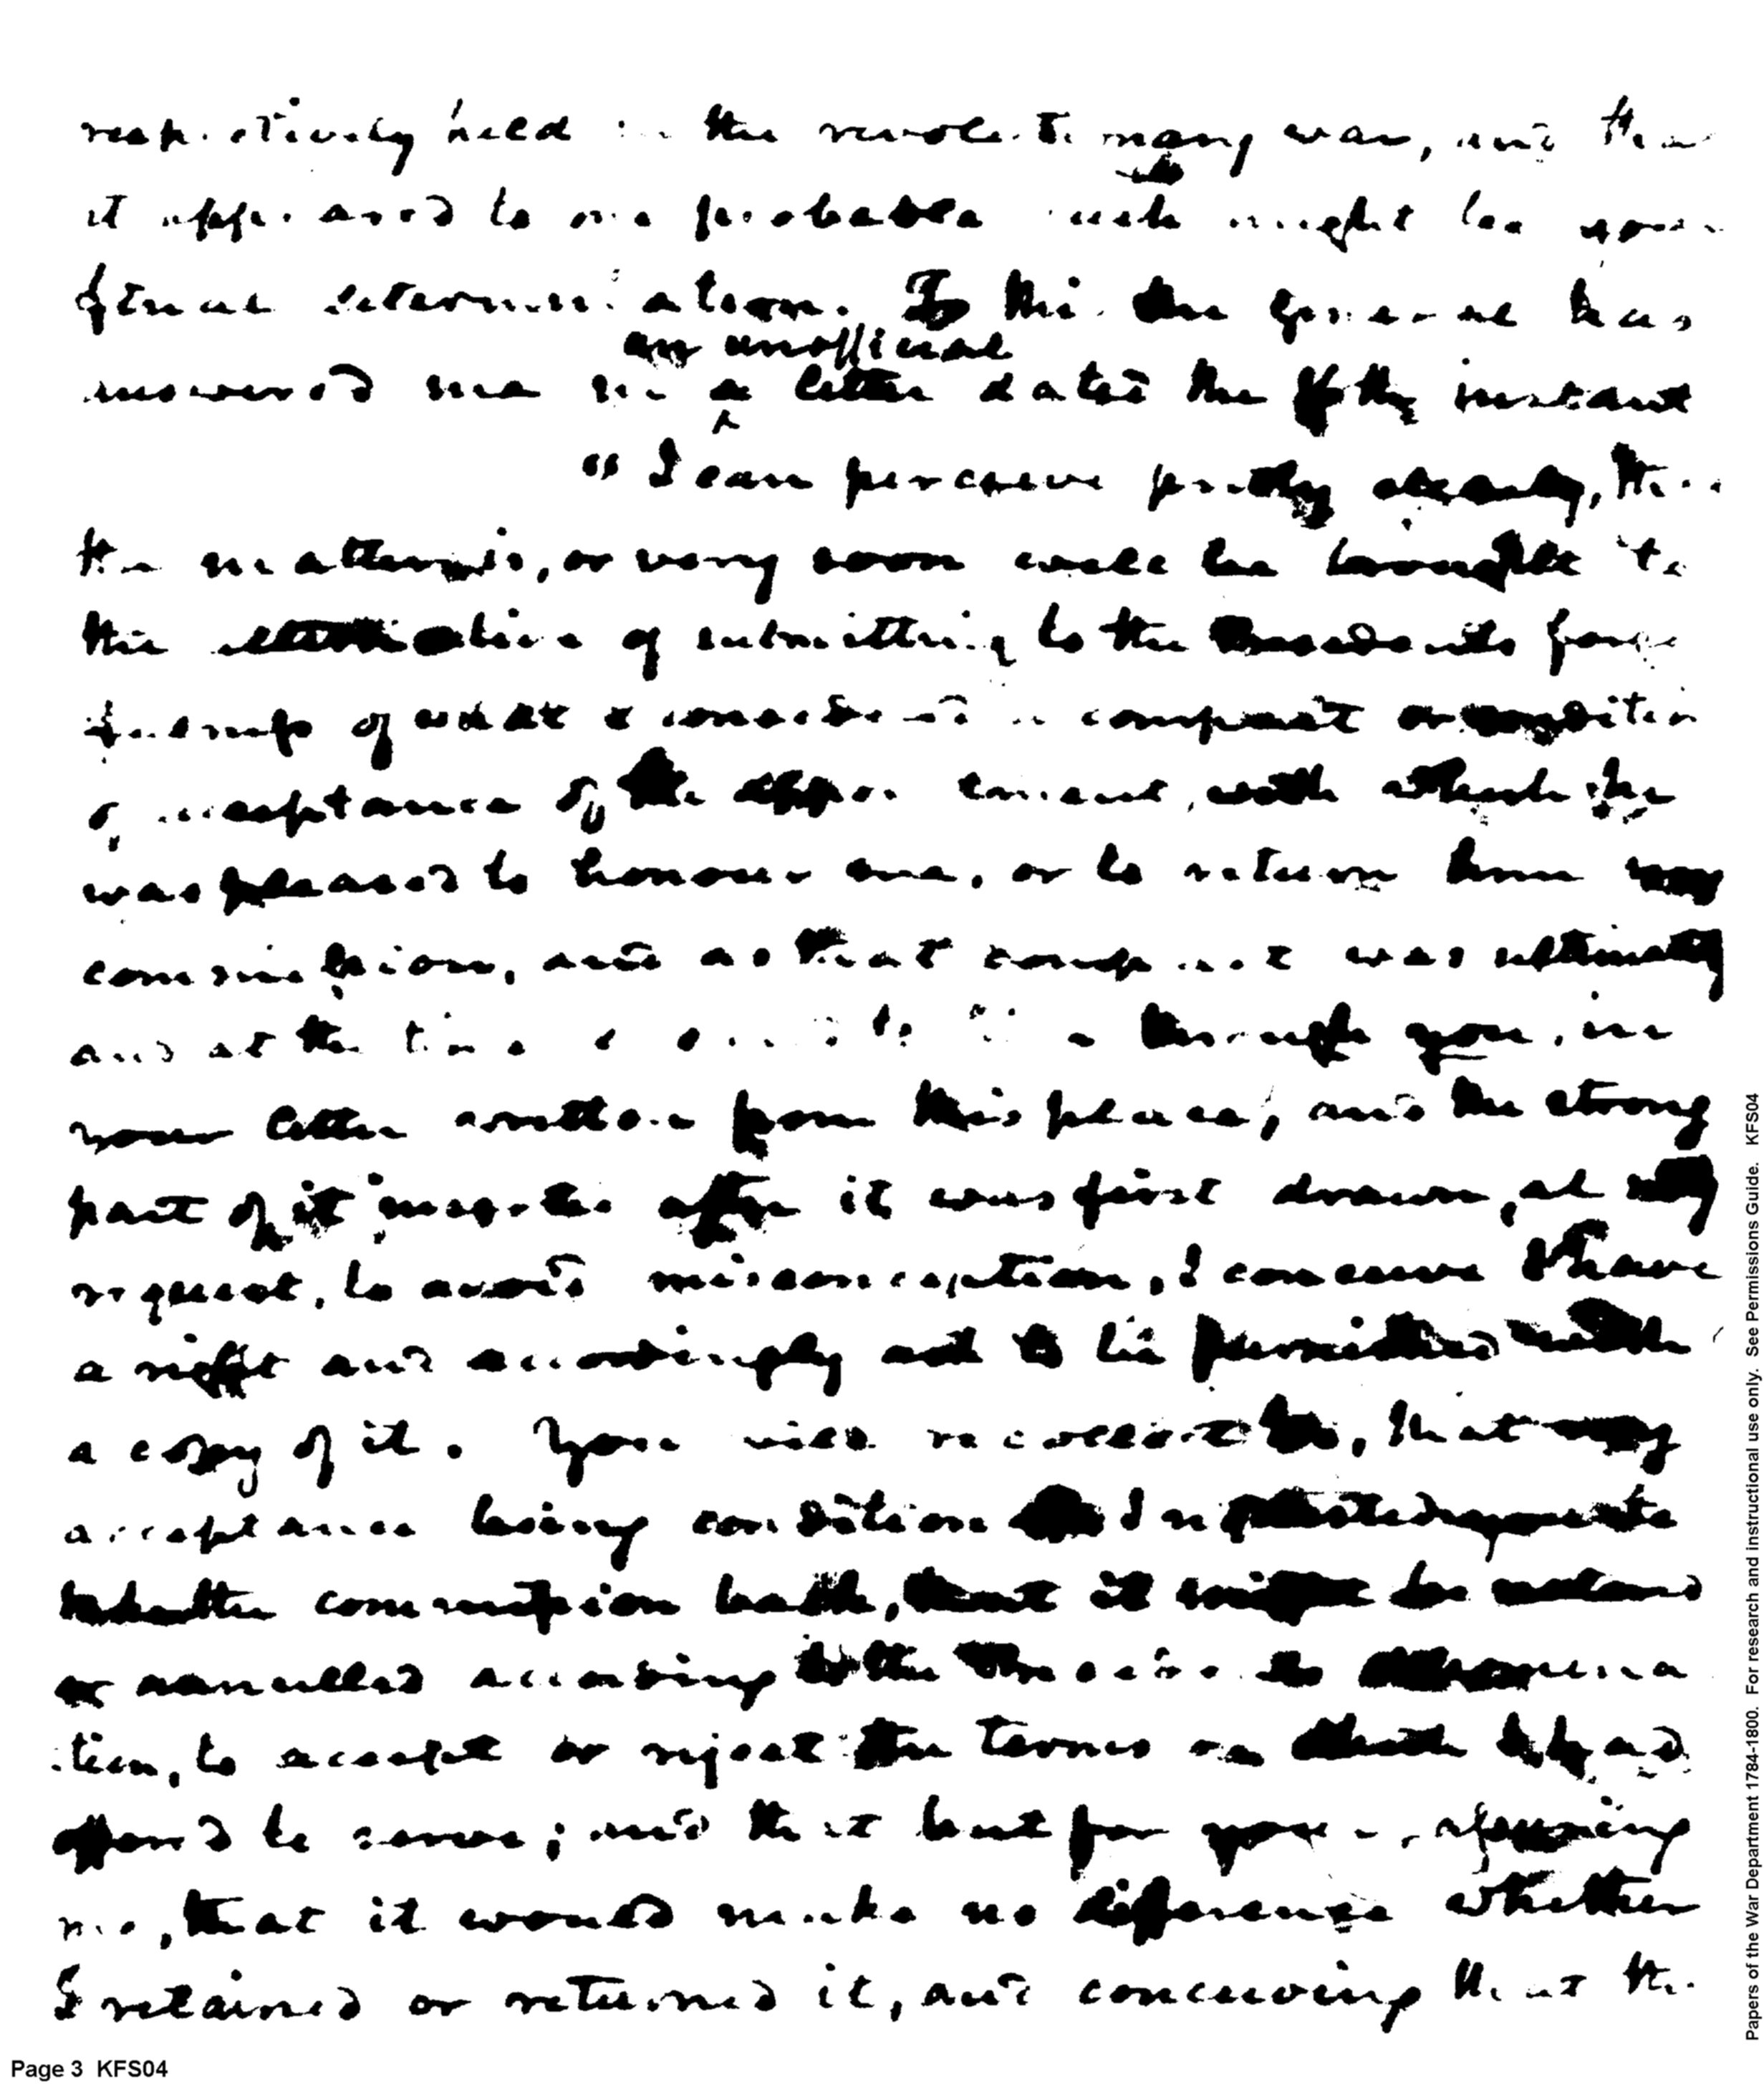 respectively held in the revolutionary war, and that
it appeared to me probable such might be your
final determination. To this the general has
answered me in a an unofficial letter dated the instant
"I can perceive pretty clearly, that
the matter is, or very soon will be brought to
the alternative of submitting to the Presidents forge-
fulness of what I considered a compact or condition
of acceptance of the appointment, with which he
was pleased to honour me, or to return him my
commission, and as that compact was ultimately
and at the time through you, in
your letter written from this place, and the strong
part of it inserted after it was first drawn, at my
request, to avoid misconception, I conceive I have
a right and accordingly ask to be furnished with
a copy of it. You will recollect too, that my
acceptance being conditional I requested you to
take the commission back, that it might be restored
or annulled according to the Presidents determina
tion, to accept or reject the terms on which I had
offered to serve; and that but for your assuring
me, that it would make no difference whether
I retained or returned it, and conceiving that the
Page 3 KFS04
Papers of the War Department 1784-1800. For research and instructional use only. See Permissions Guide. KFS04